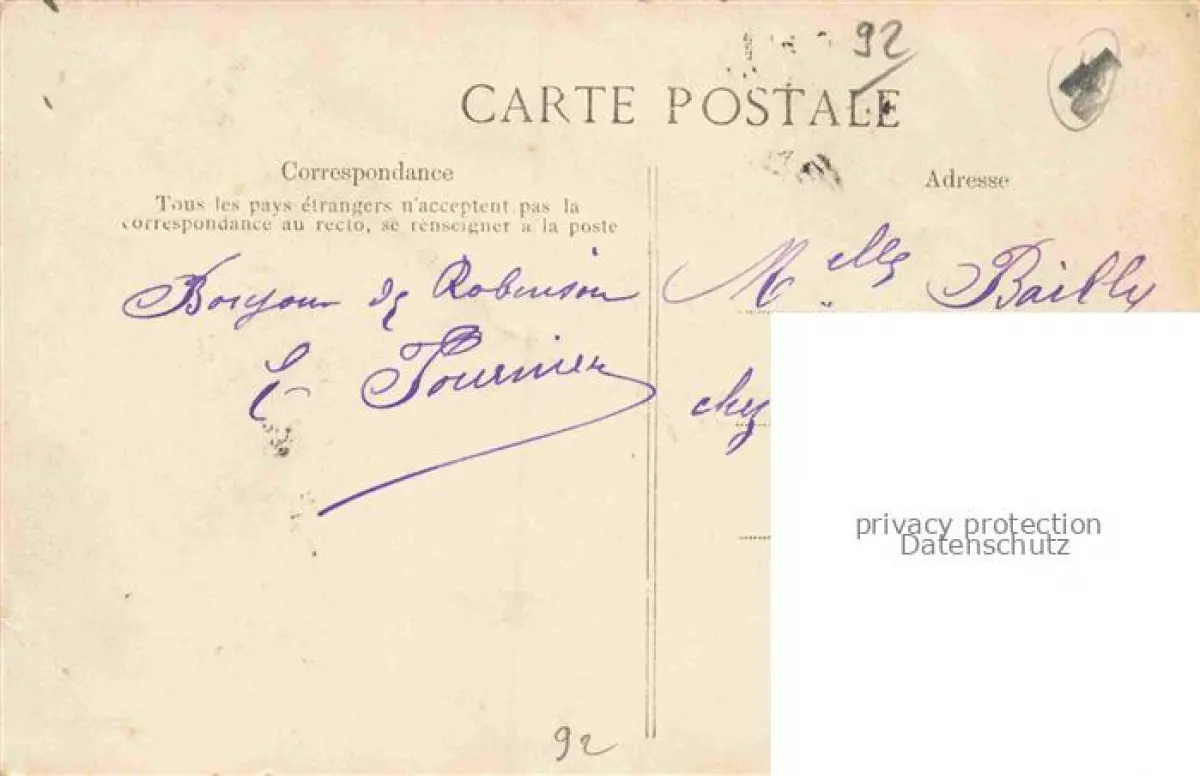 92
CARTE POSTALE
Correspondance
Tous les pays étrangers n'acceptent pas la
correspondance au recto, se renseigner à la poste
Bonjour de Robinson
E Fournier
92
Adresse
Melle Bailly
chez
privacy protection
Datenschutz